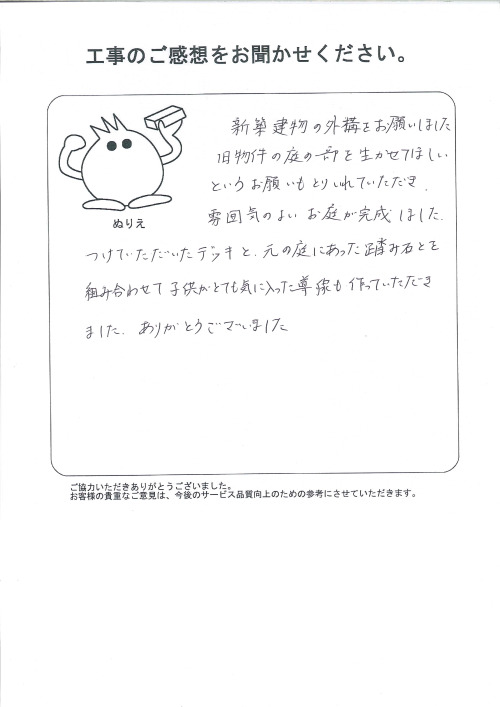 工事のご感想をお聞かせください。
新築建物の外構をお願いしました
旧物件の庭の一部を生かせてほしい
というお願いもとりいれていただき、
雰囲気のよいお庭が完成しました。
ぬりえ
つけていただいたデッキと、元の庭にあった踏み石とを
組み合わせて子供がとても気に入った導線も作っていただき
ました。ありがとうございました
ご協力いただきありがとうございました。
お客様の貴重なご意見は、今後のサービス品質向上のための参考にさせていただきます。